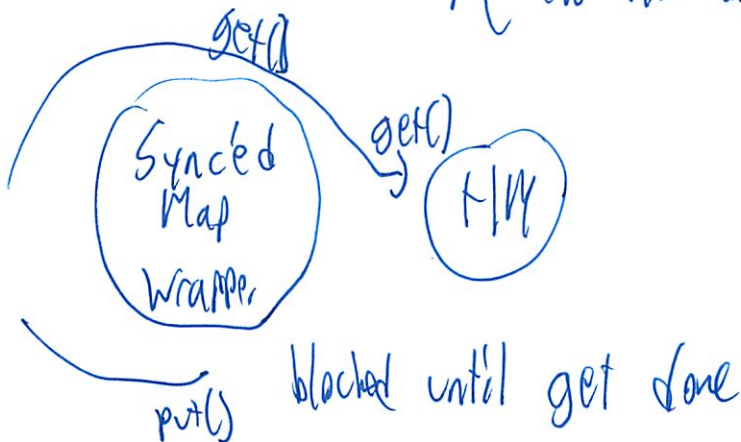 get()
get()
Sync'ed
Map
Wrapper
HM
put()
blocked until get done